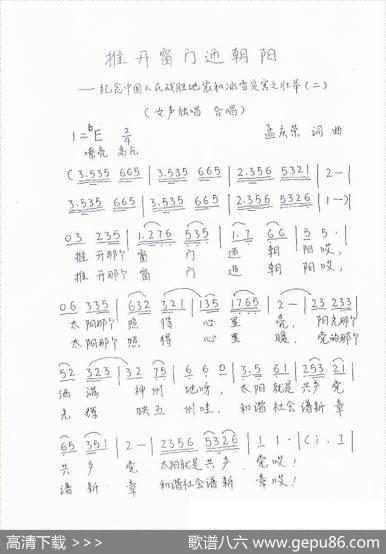 推开窗门迎朝阳
——纪念中国人民战胜地震和冰雪灾害之壮举(二)
(女声独唱 合唱)
1=ᵇE 2/4 孟庆荣 词曲
嘹亮 高亢
(3.535 665 | 3.535 665 | 2.356 5321 | 2 - |
3.535 665 | 3.535 665 | 2.356 5326 | 1 -) |
03 235 | 1.276 535 | 1.7 66 | 5 5. |
推开那个 窗 门 迎 朝 阳哎,
推开那个 窗 门 迎 朝 阳哎,
06 335 | 632 321 | 135 1765 | 2 - | 23 233 |
太阳那个 照 得 心里 亮, 阳光那个
太阳那个 照 得 心里 暖, 党的那个
52 323 | 32 75 | 6 6 0 | 3.5 61 | 253 21 |
洒满 神州 地呀, 太阳就是共产党
光 得 映五州哇, 和谐社会谱新章
65 351 | 2 - | 2356 5326 | 1 1. | (i. I
共产 党 太阳就是共产 党哎!
谱新 章 和谐社会谱新 章哎!
高清下载 >>> 歌谱八六 www.gepu86.com